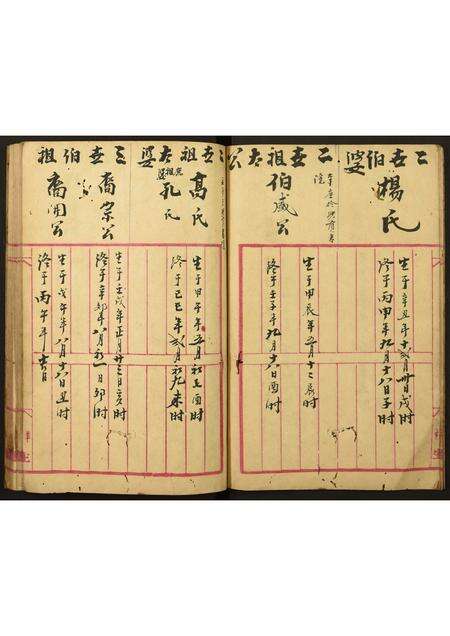 二世伯婆
楊氏
生于辛丑年十弍月卅日戌时
终于丙申年九月十八日子时
二世祖太公
伯盛公
生于甲辰年二月十二辰时
终于壬子年九月十六日酉时
二世祖太婆
高氏
孔氏
生于甲午年五月初五酉时
终于己巳年弍月初九未时
三世伯祖
裔宗公
生于壬戌年正月廿三日亥时
终于辛卯年八月初一日卯时
裔開公
生于戊午年八月十六日丑时
终于丙午年